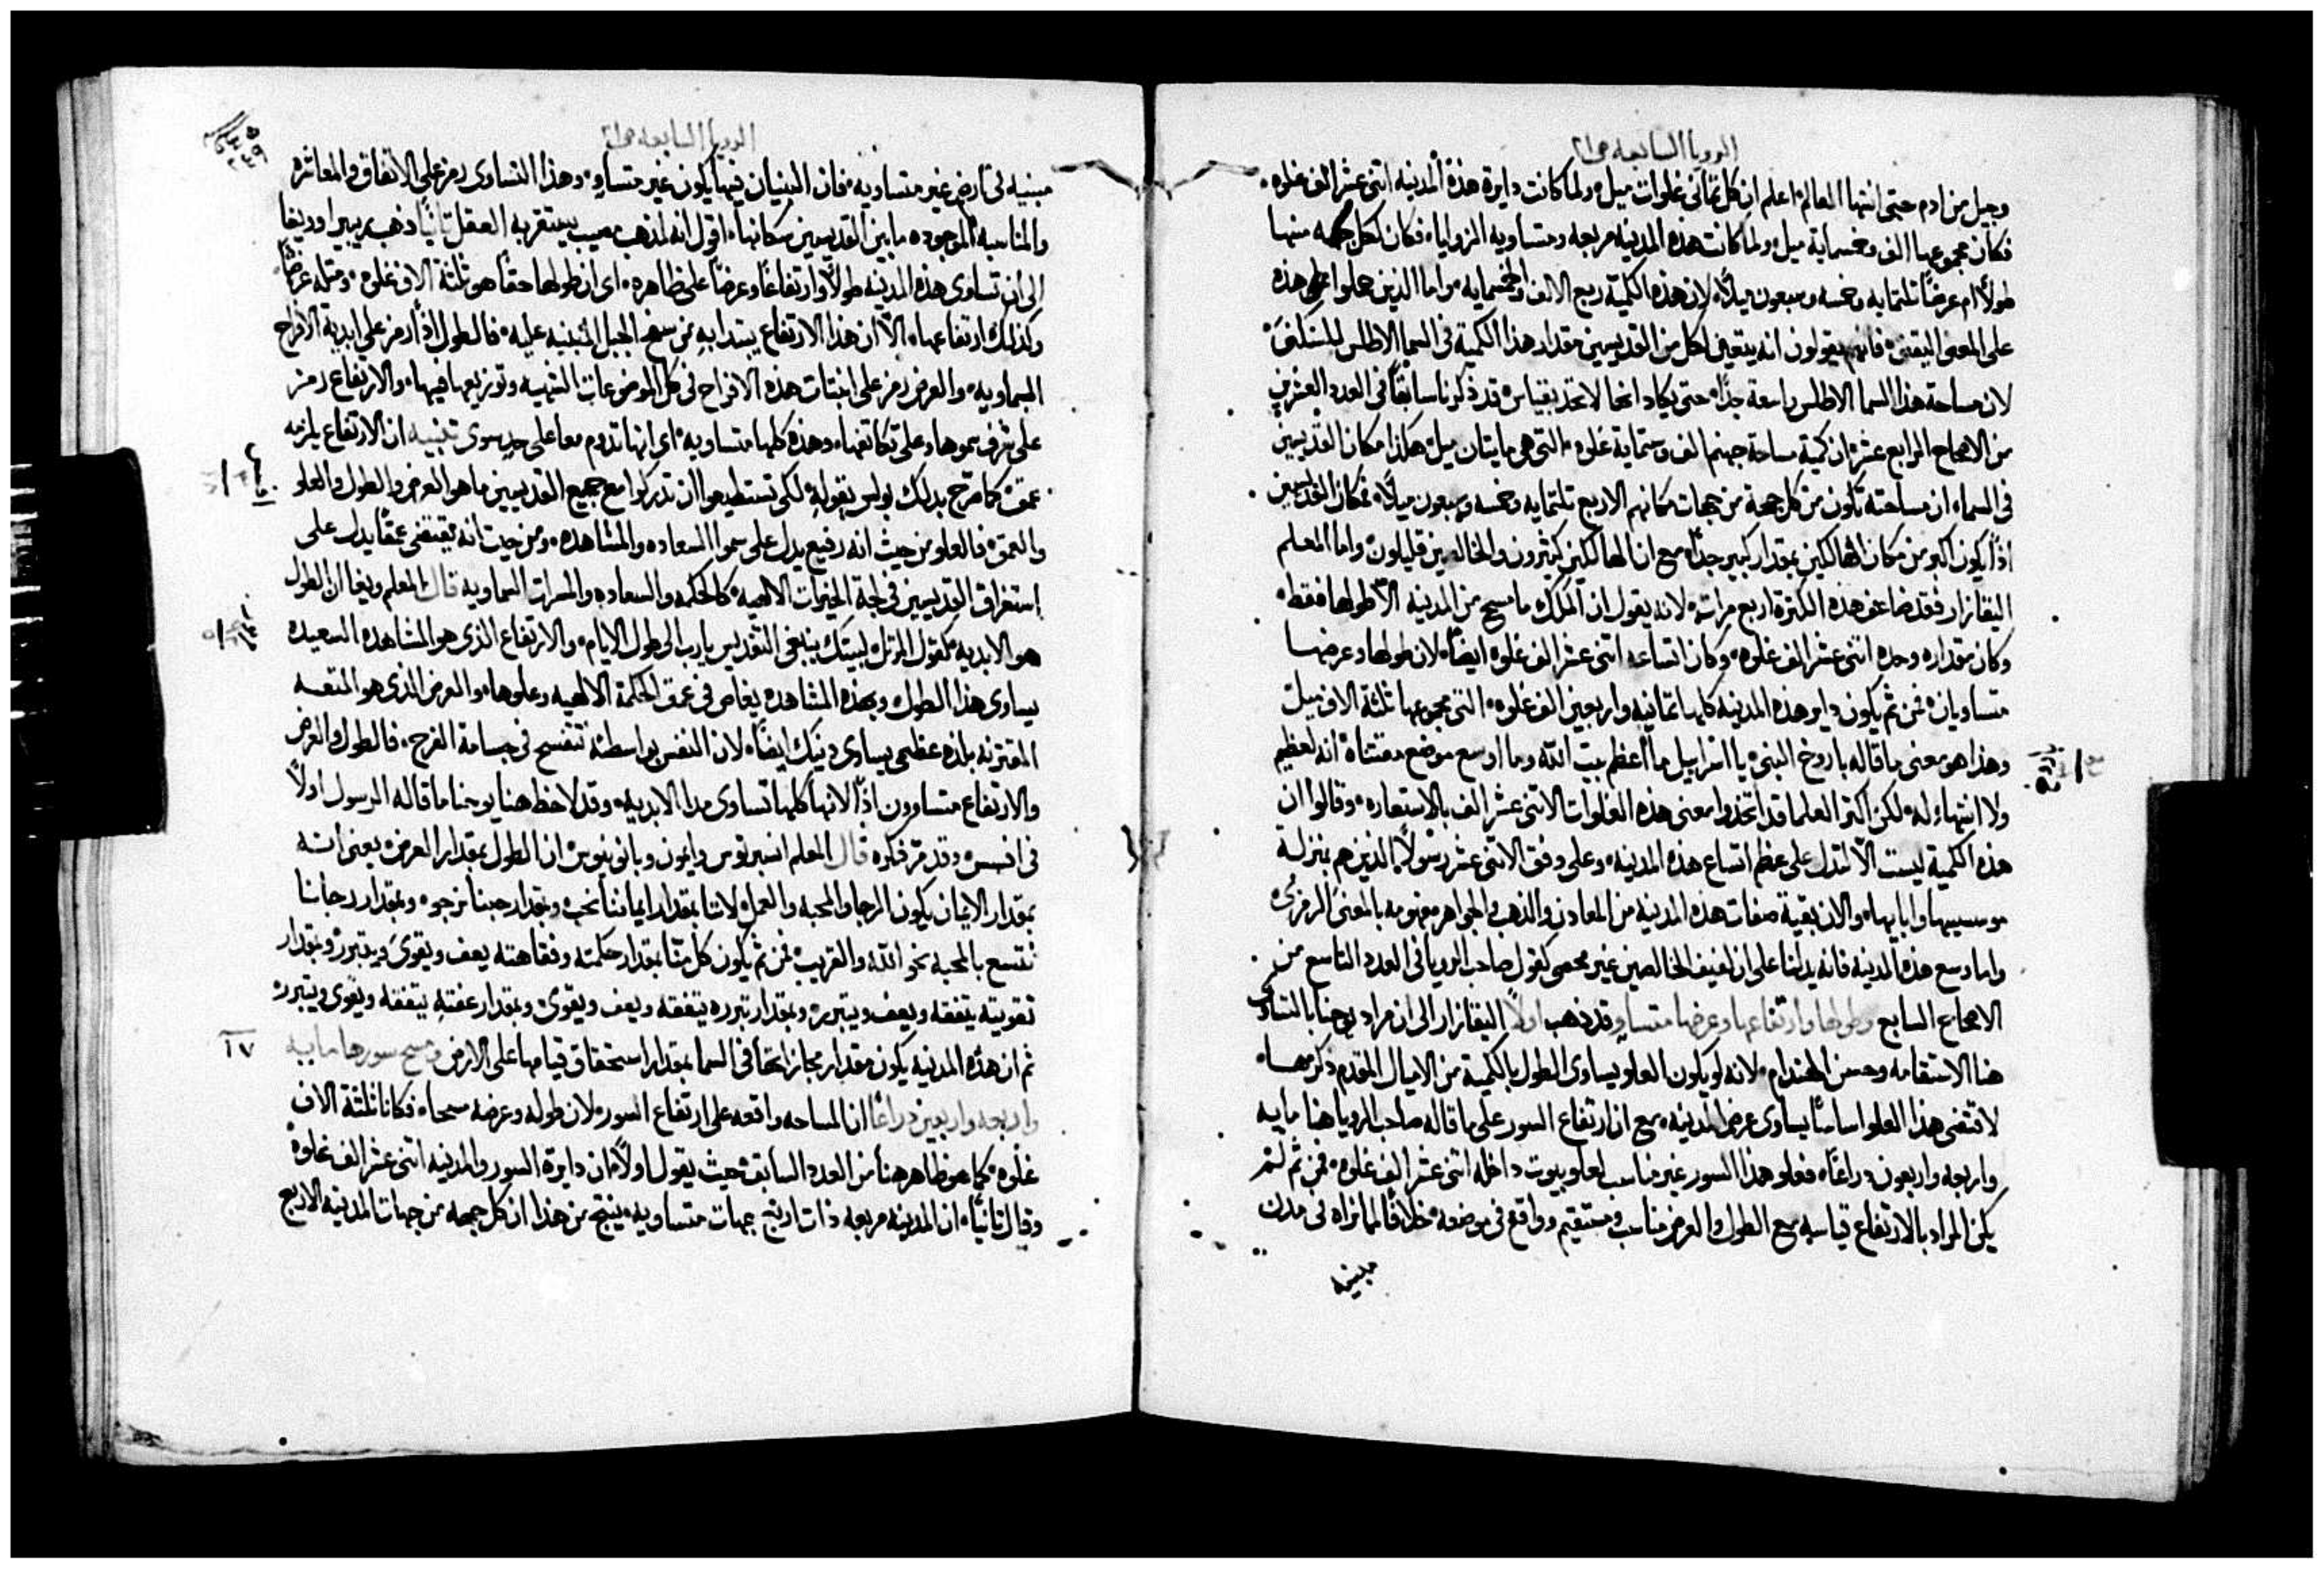 الرويا السابعه ص ٢١
وجيل من ادم حتى انتها العالم اعلم ان كل ثماني غلوات ميل ولما كانت دايرة هذة المدينه اثني عشر الف غلوه
فكان مجموعها الف وخمساية ميل ولما كانت هذه المدينه مربعه ومتساويه الزوايا فكان لكل جهه منها
طولاً ام عرضاً ثلثمايه وخمسه وسبعون ميلاً لان هذه الكمية ربع الالف والخمسمايه واما الذين حملوا هذه
على المعنى اليقيني فانهم يقولون انه يتعين لكل من القديسين مقدار هذا الكمية في السما الاطلس للسكنى
لان مساحة هذا السما الاطلس واسعة جداً حتى يكاد انها لا تحد بقياس قد ذكرنا سابقاً في العدد العشرين
من الاصحاح الرابع عشر ان كمية مساحة جهنم الف وستماية غلوه التي هي مايتان ميل هكذا مكان القديسين
في السماء ان مساحته تكون من كل جهة من جهات مكانهم الاربع ثلثمايه وخمسه وسبعون ميلاً فمكان القديسين
اذاً يكون اكبر من مكان الهالكين بمقدار كبير جداً مع ان الهالكين كثيرون والخالصين قليلون واما المعلم
اليقازار فقد ضاعف هذه الكثرة اربع مرات لانه يقول ان الملك ما مسح من المدينه الا طولها فقط
وكان مقداره وحده اثني عشر الف غلوه وكان اتساعه اثني عشر الف غلوه ايضاً لان طولها وعرضها
متساويان فمن ثم يكون داير هذه المدينه كلها ثمانيه واربعين الف غلوه التي مجموعها ثلثة الاف ميل
وهذا هو معنى ما قاله باروخ النبي يا اسراييل ما اعظم بيت الله وما اوسع موضع مقتناه انه لعظيم
ولا انتهاء له لكن اكثر العلما قد اتخذوا معنى هذه الغلوات الاثني عشر الف بالاستعاره وقالوا ان
هذه الكمية ليست الا لتدل على عظم اتساع هذه المدينه وعلى وفق الاثني عشر رسولاً الذين هم بمنزلة
موسسيها وابايها والان بقية صفات هذه المدينه من المعادن والذهب والجواهر مفهومه بالمعنى الرمزي
واما وسع هذه المدينه فانه يدلنا على ان لفيف الخالصين غير محصى كقول صاحب الرويا في العدد التاسع من
الاصحاح السابع وطولها وارتفاعها وعرضها متساو قد ذهب اولاً اليقازار الى ان مراد يوحنا بالتساوي
هنا الاستقامه وحسن الهندام لانه لو يكون العلو يساوي الطول بالكمية من الاميال المقدم ذكرها
لاقتضى هذا العلو اساساً يساوي عرض المدينه مع ان ارتفاع السور على ما قاله صاحب الرويا هنا مايه
واربعه واربعون دراعاً فعلو هذا السور غير مناسب لعلو بيوت داخله اثني عشر الف غلوه فمن ثم لم
يكن المراد بالارتفاع قياسه مع الطول والعرض مناسب ومستقيم وواقع في موضعه خلافاً لما نراه في مدن
مبنيه
الرويا السابعه ص ٢١
مبنيه في ارض غير متساويه فان البنيان فيها يكون غير متساو وهذا التساوي رمز على الاتفاق والمعاشره
والمناسبه الموجوده ما بين القديسين سكانها اقول انه لمذهب معيب يستقربه العقل ثانياً ذهب بيرا وريغا
الى ان تساوي هذه المدينه طولاً وارتفاعاً وعرضاً على ظاهره اي ان طولها حقاً هو ثلثة الاف غلوه ومثله عرضاً
وكذلك ارتفاعها الا ان هذا الارتفاع يبتدا به من سفح الجبل المبنيه عليه فالطول اذاً رمز على ابدية الافراح
السماويه والعرض رمز على انبتات هذه الافراح في كل الموضوعات الشهيه وتوزيعها فيها والارتفاع رمز
على شرف سموها وعلى تكاتفها وهذه كلها متساويه اي انها تدوم معاً على حد سوى تنبيه ان الارتفاع يلزمه
عمق كما صرح بذلك بولس بقوله لكي تستطيعوا ان تدركوا مع جميع القديسين ما هو العرض والطول والعلو
والعمق فالعلو من حيث انه رفيع يدل على سمو السعاده والمشاهده ومن حيث انه يقتضي عمقاً يدل على
استغراق القديسين في لجة الخيرات الالهيه كالحكمه والسعاده والمسرات السماويه قال المعلم ريغا ان الطول
هو الابديه كقول المرتل لبيتك ينبغي التقديس يارب الى طول الايام والارتفاع الذي هو المشاهده السعيده
يساوي هذا الطول وبهذه المشاهده يغاص في عمق الحكمة الالهيه وعلوها والعرض الذي هو المتعه
المقترنه بلذه عظمى يساوي دينك ايضاً لان النفس بواسطته تنفسح في جسامة الفرح فالطول والعرض
والارتفاع متساوون اذاً لانها كلها تساوي مدا الابديه وقد لاحظ هنا يوحنا ما قاله الرسول اولاً
في افسس وقد مر ذكره قال المعلم انسبرتوس وايمون وبانونيوس ان الطول بمقدار العرض يعني انه
بمقدار الايمان يكون الرجا والمحبه والعمل لاننا بمقدار ايماننا نحب وبمقدار حبنا نرجو وبمقدار رجانا
نتسع بالمحبه نحو الله والقريب فمن ثم يكون كل منا بمقدار حكمته وفقاهته يعف ويقوى ويتبرر وبمقدار
تقويته يتفقه ويعف ويتبرر وبمقدار تبرره يتفقه ويعف ويقوى وبمقدار عفته يتفقه ويقوى ويتبرر
ثم ان هذه المدينه يكون مقدار مجازاتها في السما بمقدار استحقاق قيامها على الارض ومسح سورها مايه
١٧
واربعه واربعين دراعاً ان المساحه واقعه على ارتفاع السور لان طوله وعرضه مسحاه فكانا ثلثة الاف
غلوه كما هو ظاهر هنا من العدد السابق حيث يقول اولاً ان دايرة السور والمدينه اثني عشر الف غلوه
وقال ثانياً ان المدينه مربعه ذات اربع جهات متساويه ينتج من هذا ان كل جهه من جهات المدينه الاربع